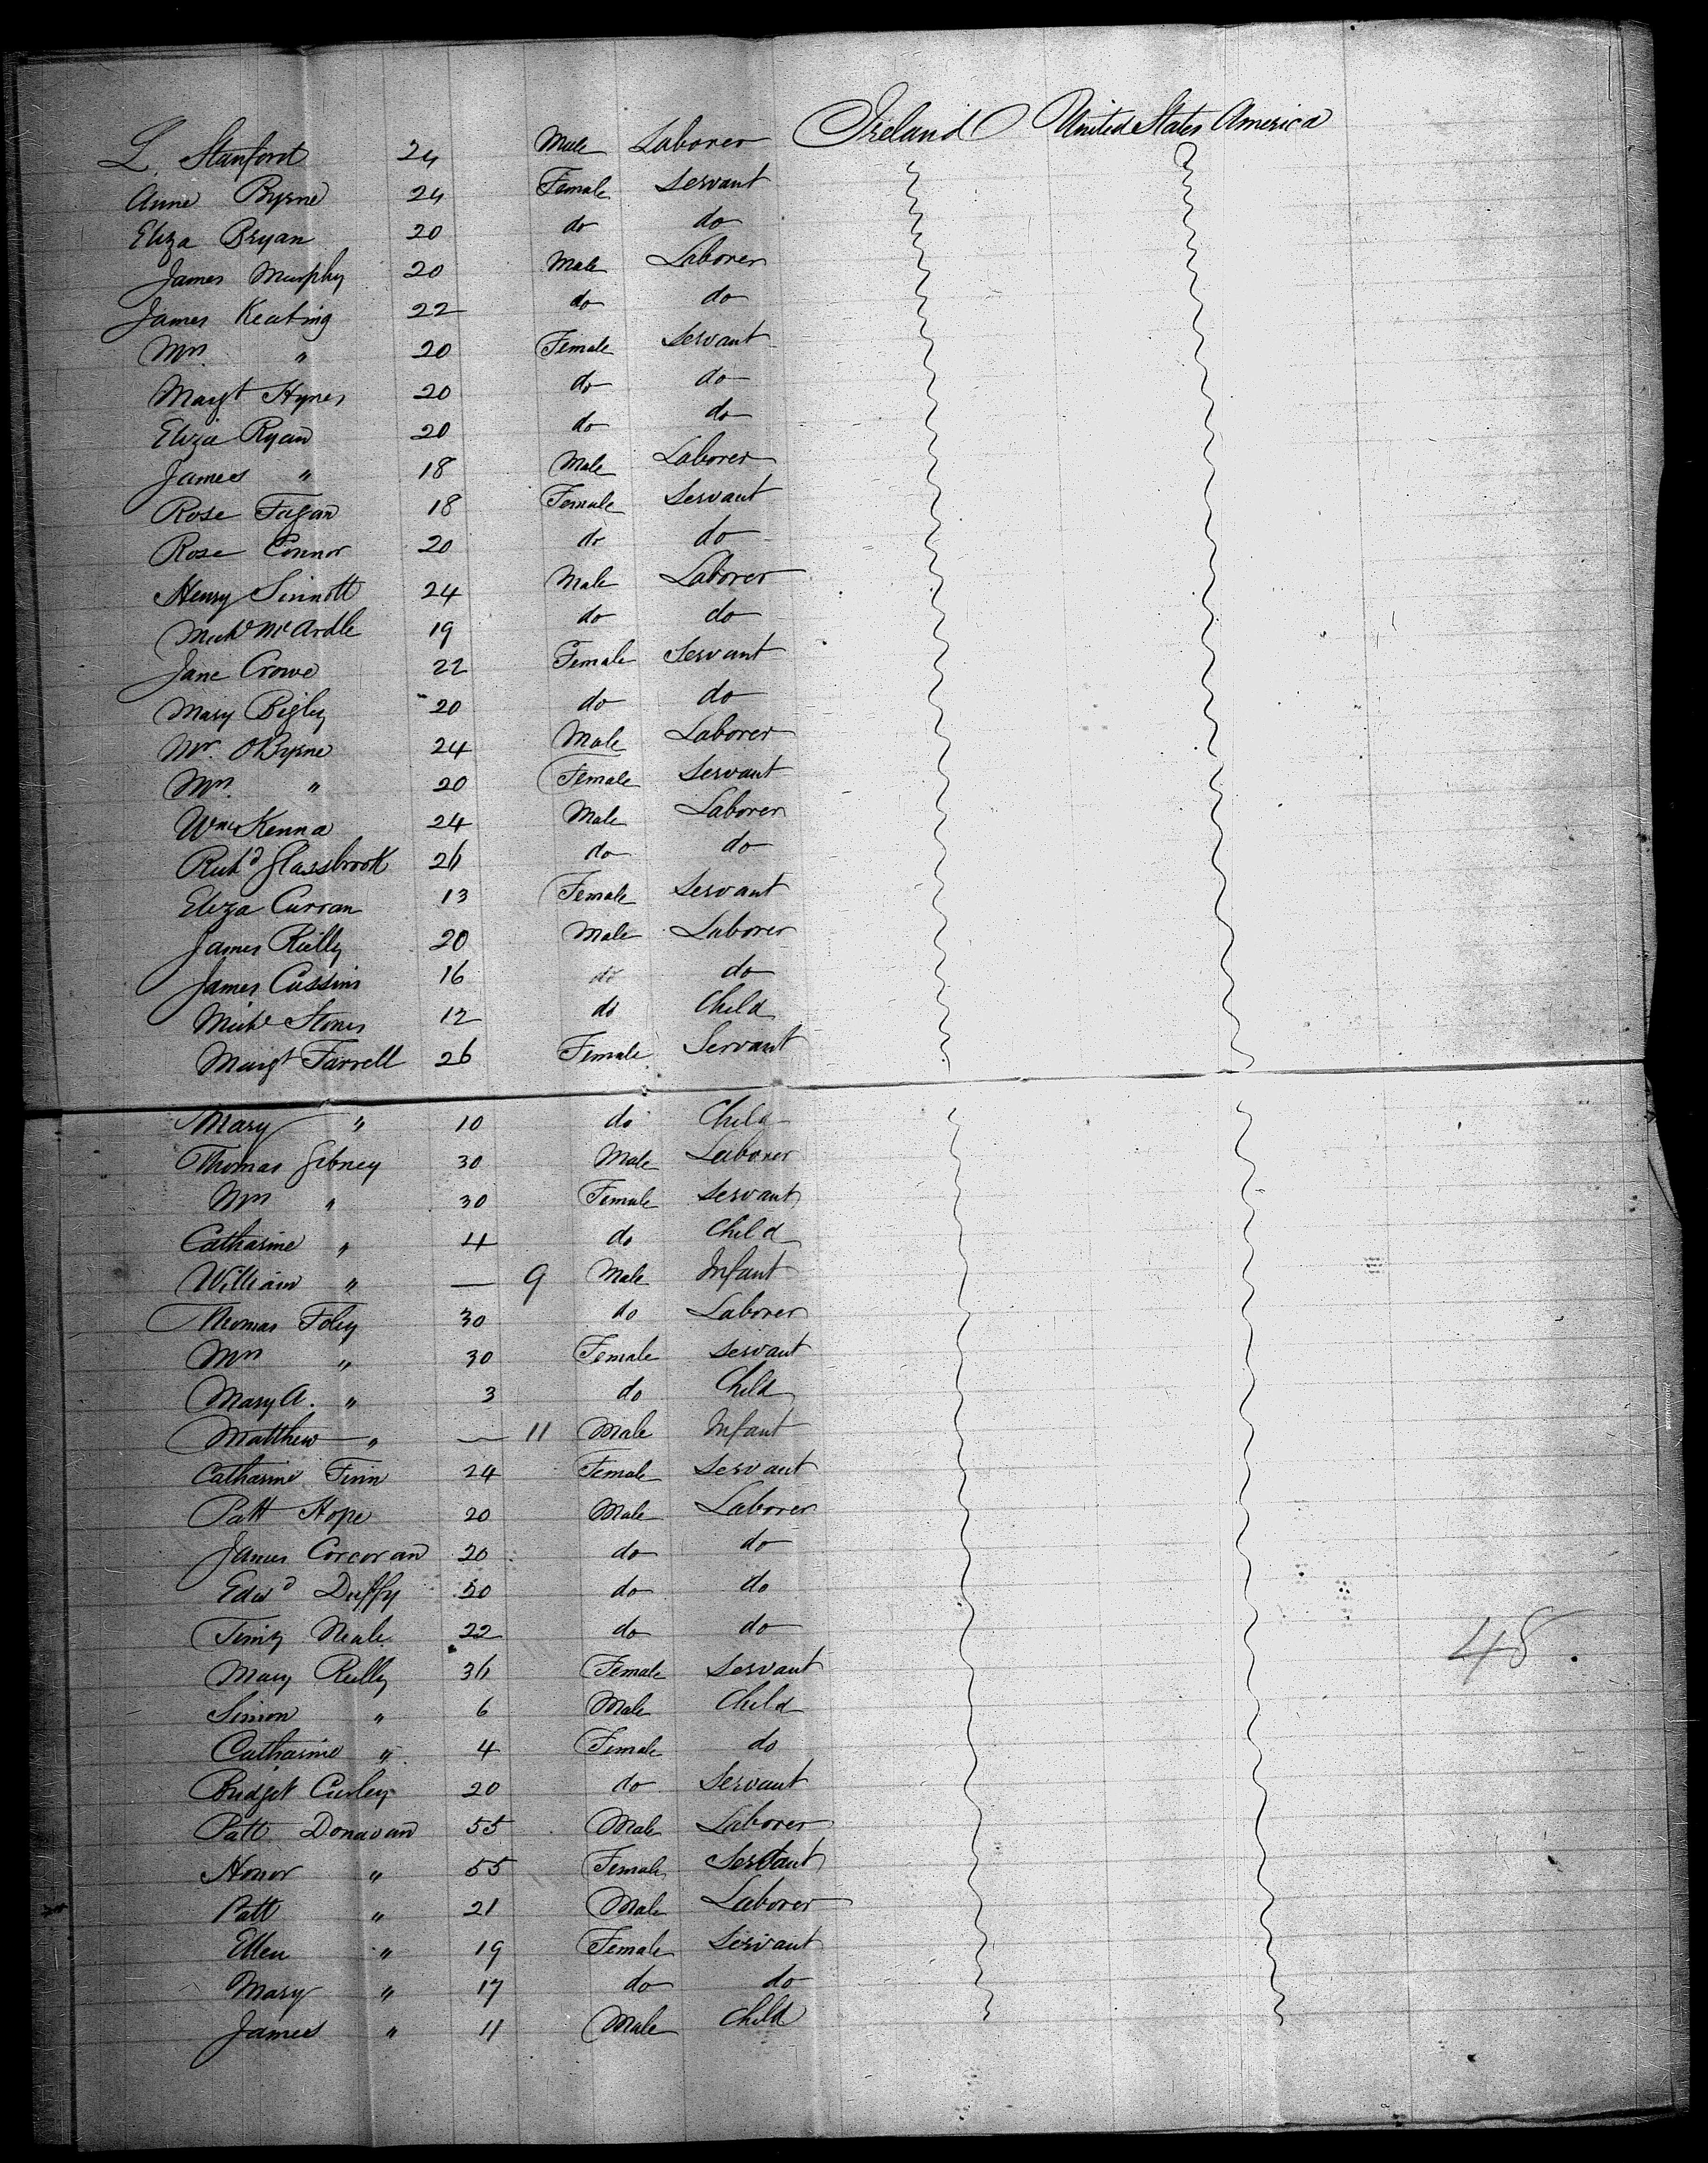 L. Stanford 24 Male Laborer Ireland United States America
Anne Byrne 24 Female Servant
Eliza Bryan 20 do do
James Murphy 20 Male Laborer
James Keating 22 do do
Mrs " 20 Female Servant
Margt Hynes 20 do do
Eliza Ryan 20 do do
James " 18 Male Laborer
Rose Fagan 18 Female Servant
Rose Connor 20 do do
Henry Sinnott 24 Male Laborer
Michl McArdle 19 do do
Jane Crowe 22 Female Servant
Mary Begley 20 do do
Mr. OByrne 24 Male Laborer
Mrs. " 20 Female Servant
Wm Kenna 24 Male Laborer
Richd Glassbrook 26 do do
Eliza Curran 13 Female Servant
James Rielly 20 Male Laborer
James Cussins 16 do do
Michl Stones 12 do Child
Margt Farrell 26 Female Servant
Mary " 10 do Child
Thomas Gibney 30 Male Laborer
Mrs " 30 Female Servant
Catharine " 4 do Child
William " — 9 Male Infant
Thomas Foley 30 do Laborer
Mrs " 30 Female Servant
Mary A. " 3 do Child
Matthew " — 11 Male Infant
Catharine Finn 24 Female Servant
Patt Hope 20 Male Laborer
James Corcoran 20 do do
Edwd Duffy 20 do do
Timy Neale 22 do do
Mary Reilly 36 Female Servant
Simon " 6 Male Child
Catharine " 4 Female do
Bridget Curley 20 do Servant
Patt Donavan 55 Male Laborer
Honor " 55 Female Servant
Patt " 21 Male Laborer
Ellen " 19 Female Servant
Mary " 17 do do
James " 11 Male Child
48